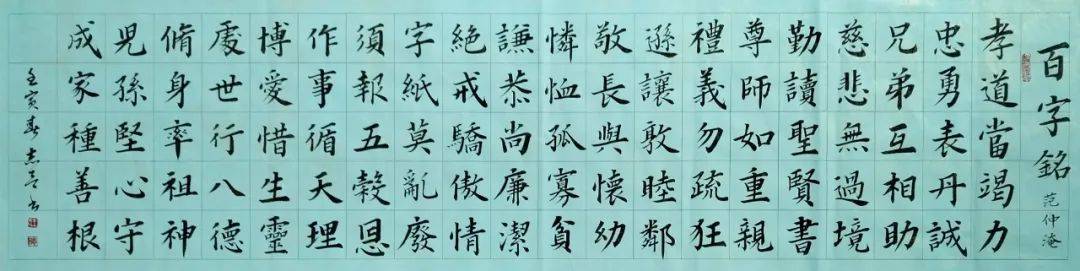 百字銘
范仲淹
孝道當竭力
忠勇表丹誠
兄弟互相助
慈悲無過境
勤讀聖賢書
尊師如重親
禮義勿疏狂
遜讓敦睦鄰
敬長與懷幼
憐恤孤寡貧
謙恭尚廉潔
絕戒驕傲情
字紙莫亂廢
須報五穀恩
作事循天理
博愛惜生靈
處世行八德
脩身率祖神
兒孫堅心守
成家種善根
壬寅春